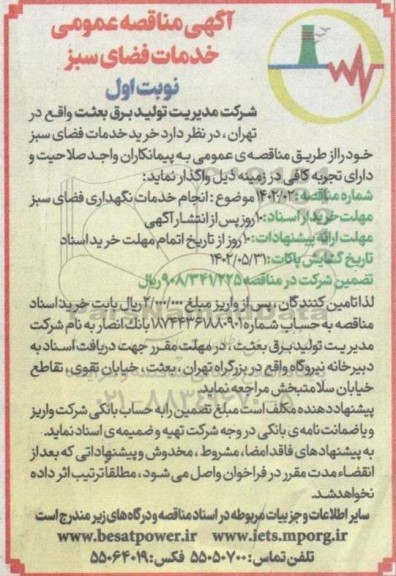 آگهی مناقصه عمومی
خدمات فضای سبز
نوبت اول
شرکت مدیریت تولید برق بعثت واقع در
تهران، در نظر دارد خرید خدمات فضای سبز
خود را از طریق مناقصه ی عمومی به پیمانکاران واجد صلاحیت و
دارای تجربه کافی در زمینه ذیل واگذار نماید:
شماره مناقصه: ۱۴۰۲/۰۲ موضوع: انجام خدمات نگهداری فضای سبز
مهلت خرید از اسناد: ۱۰ روز پس از انتشار آگهی
مهلت ارائه پیشنهادات: ۱۰ روز از تاریخ اتمام مهلت خرید اسناد
تاریخ گشایش پاکات: ۱۴۰۲/۰۵/۳۱
تضمین شرکت در مناقصه ۹۰۸/۳۴۱/۲۲۵ ریال
لذا تامین کنندگان، پس از واریز مبلغ ۲/۰۰۰/۰۰۰ ریال بابت خرید اسناد
مناقصه به حساب شماره ۱۸۷۴۴۳۶۱۸۸۰۹۰۱ بانک انصار به نام شرکت
مدیریت تولید برق بعثت، در مهلت مقرر جهت دریافت اسناد به
دبیرخانه نیروگاه واقع در بزرگراه تهران، بعثت، خیابان تقوی، تقاطع
خیابان سلامتبخش مراجعه نماید.
پیشنهاد دهنده مکلف است مبلغ تضمین را به حساب بانکی شرکت واریز
و یا ضمانت نامه ی بانکی در وجه شرکت تهیه و ضمیمه ی اسناد نماید.
به پیشنهاد های فاقد امضا، مشروط، مخدوش و پیشنهاداتی که بعد از
انقضاء مدت مقرر در فراخوان واصل می شود، مطلقا ترتیب اثر داده
نخواهد شد.
سایر اطلاعات و جزییات مربوطه در اسناد مناقصه و درگاه های زیر مندرج است
www.besatpower.ir www.iets.mporg.ir
تلفن تماس: ۵۵۰۵۰۷۰۰ فکس: ۵۵۰۶۴۰۱۹